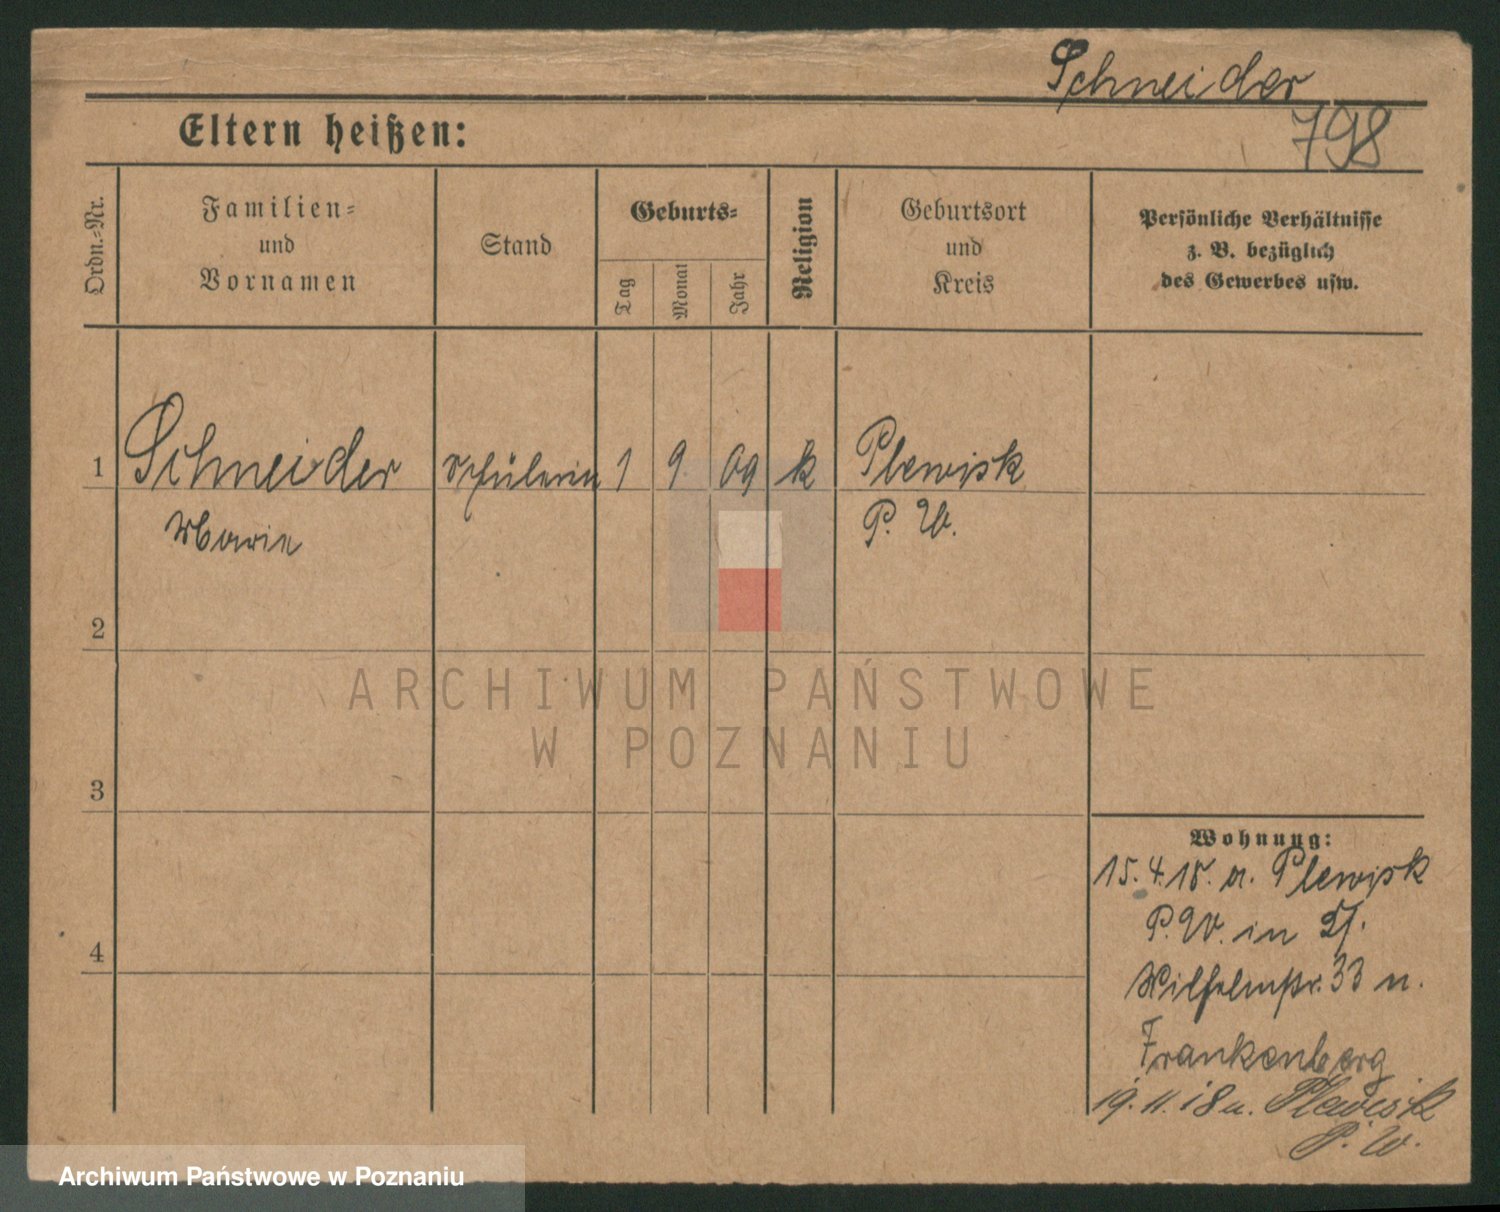 Schneider
798
Eltern heißen:
Ordn.-Nr.
Familien-
und
Vornamen
Stand
Geburts-
Tag
Monat
Jahr
Religion
Geburtsort
und
Kreis
Persönliche Verhältnisse
z. B. bezüglich
des Gewerbes usw.
1
Schneider
Schülerin
1
9.
09
k
Plewisk
Marie
P. W.
2
3
4
ARCHIWUM PAŃSTWOWE
W POZNANIU
Wohnung:
15. 4. 18. a. Plewisk
P. W. in
Wilhelmstr. 33 n.
Frankenberg
19. 11. 18 n. Plewisk
P. W.
Archiwum Państwowe w Poznaniu